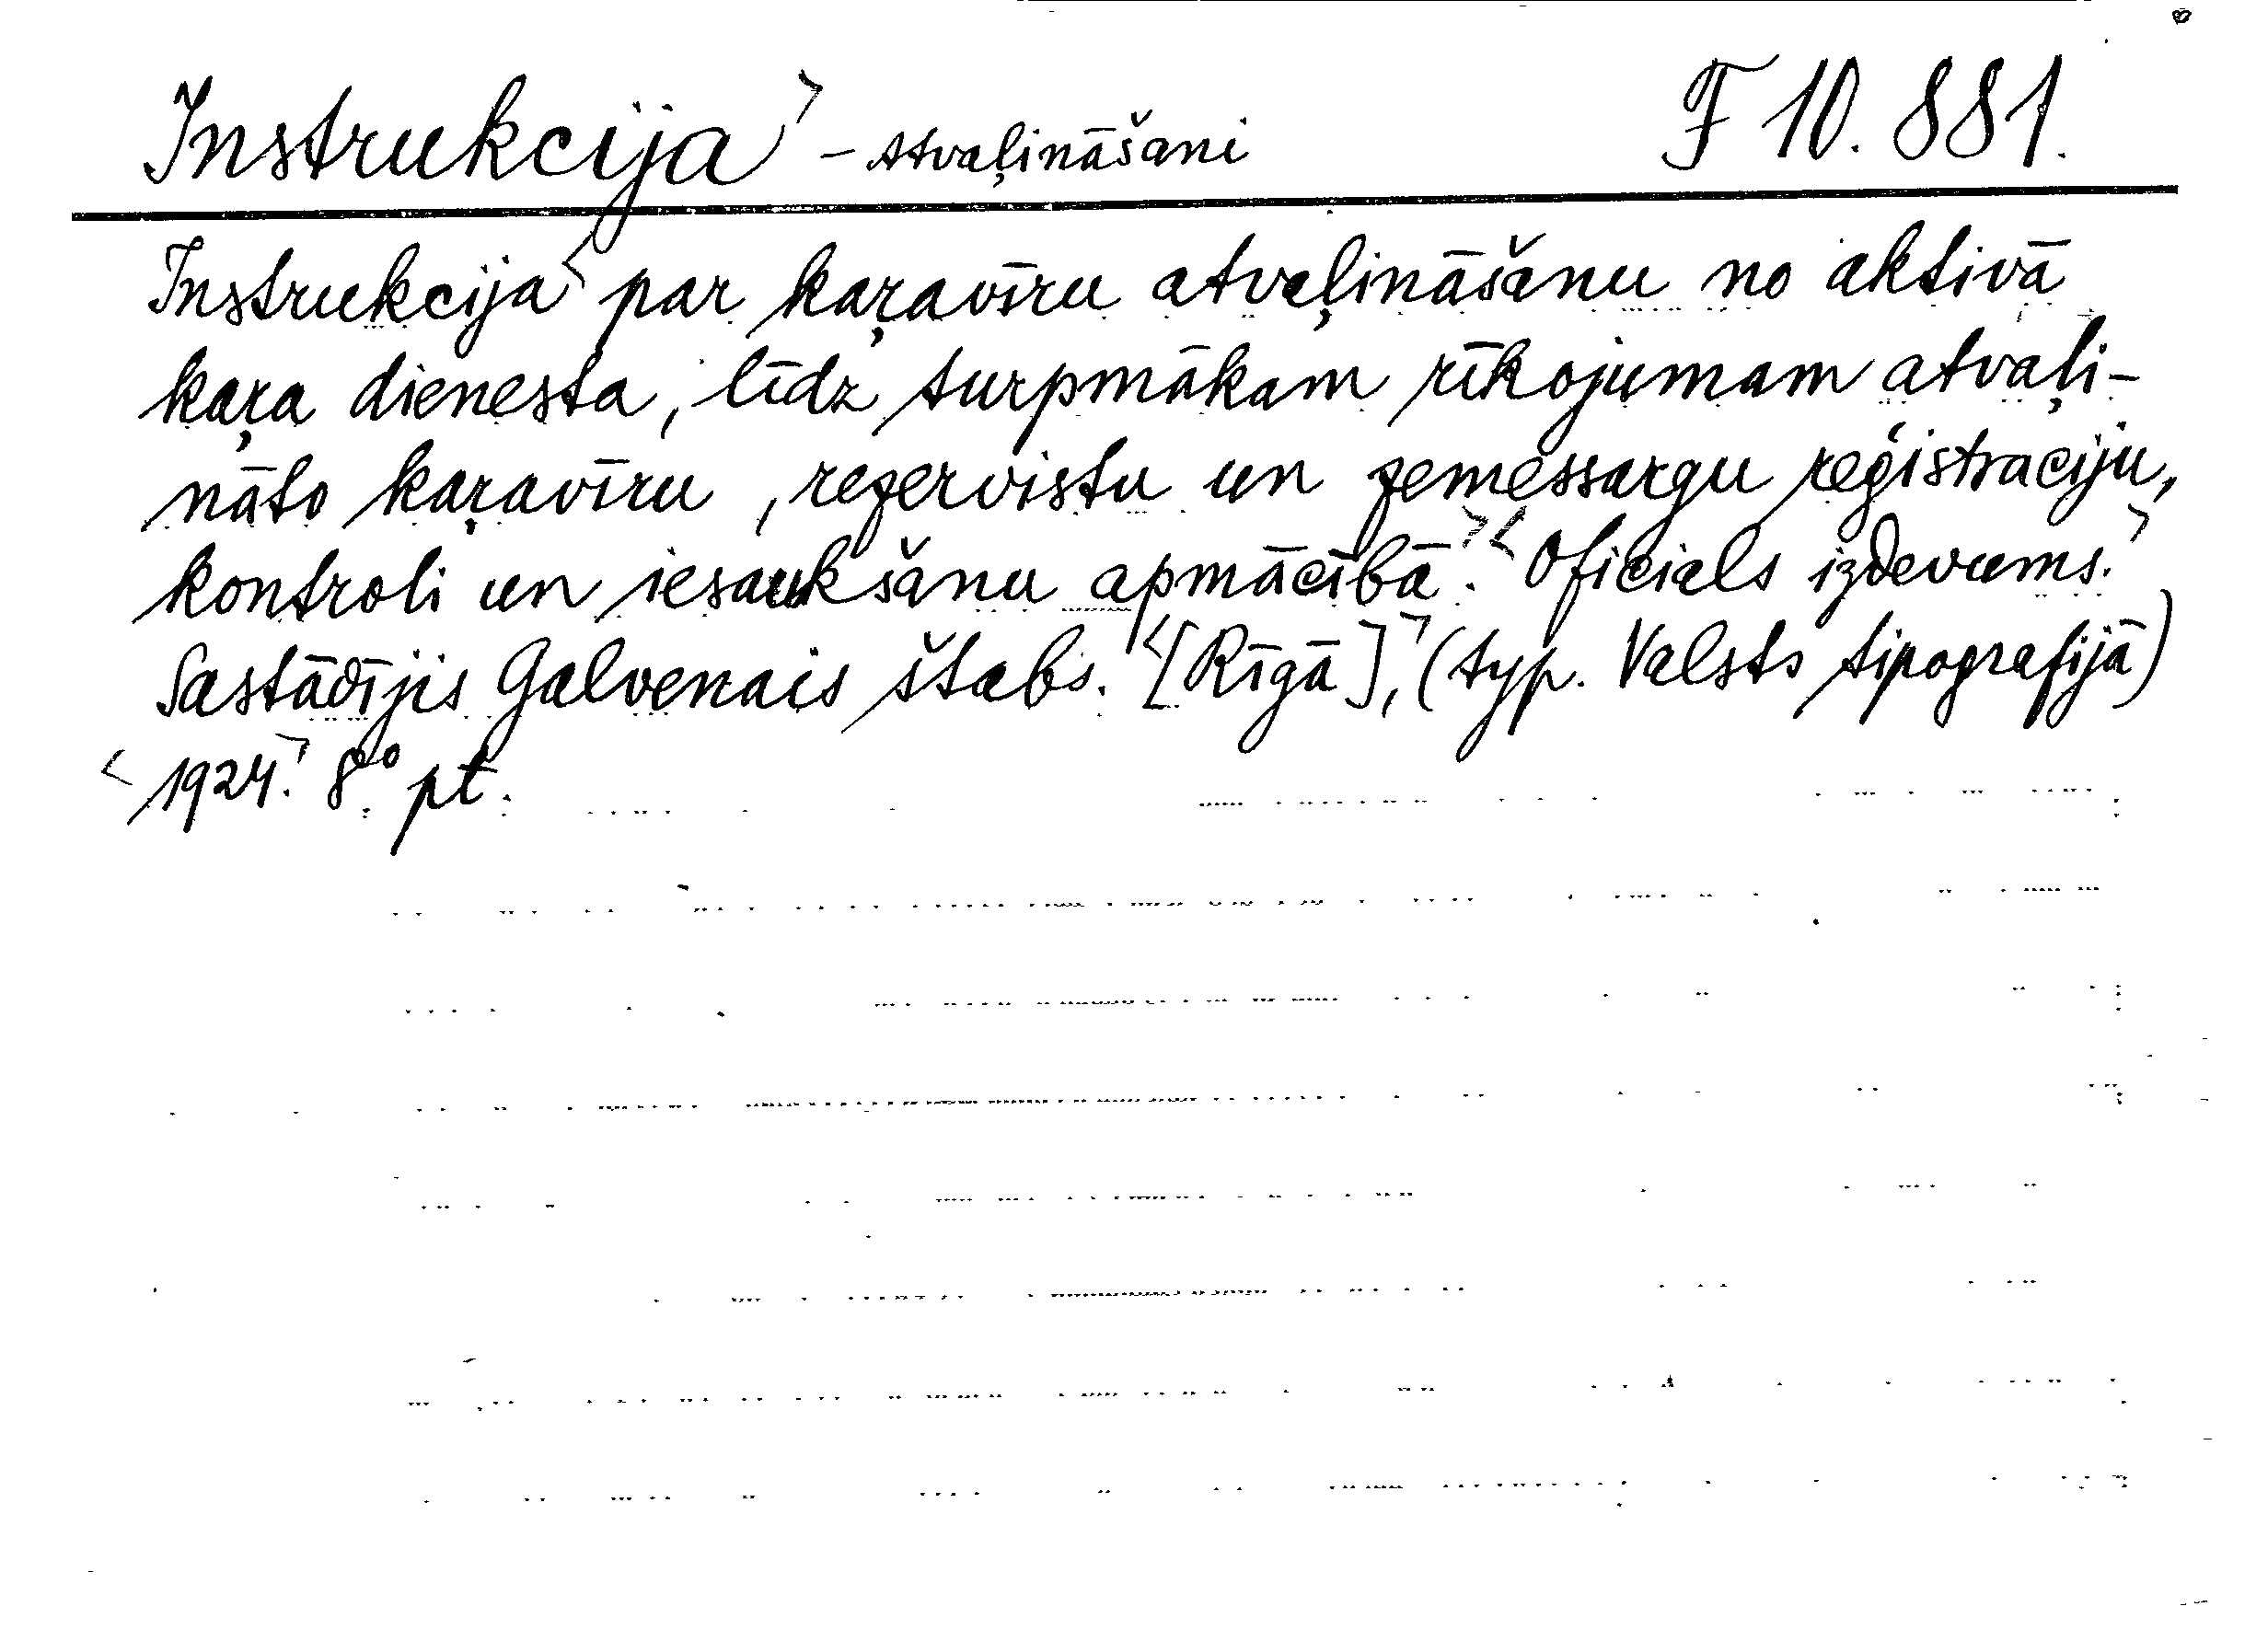 Instrukcija> - Atvaļināšani F 10.881.
Instrukcija< par kaŗavīru atvaļināšanu no aktivā
kaŗa dienesta, līdz turpmākam rīkojumam atvaļi-
nāto kaŗavīru, rezervistu un zemessargu reģistraciju,
kontroli un iesaukšanu apmācībā.>< Oficials izdevums.>
Sastādījis Galvenais štabs. <[Rīgā],> (typ. Valsts tipografijā)
<1924.> 8º. pt.